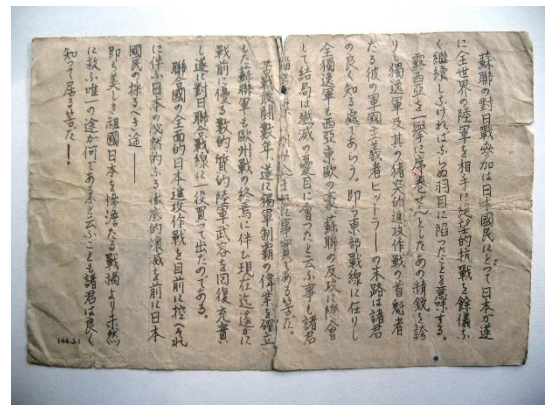 蘇聯の對日戰參加は日本國民にとつて日本が遂
に全世界の陸軍を相手に絶望的抗戰を餘儀な
く繼續しなければならぬ羽目に陥つたことを意味する。
露西亞を一擧に席巻せんとしたあの精鋭を誇
りし獨逸軍及其の猪突的進攻作戰の首魁者
たる彼の軍國主義者ヒットラーの末路は諸君
の良く知る處であらう。即ち東部戰線に在りし
全獨逸軍を西亞東歐の蘇聯の反攻に際會
して結局は殲滅の憂目に會つたと云ふ事も諸君
事實である筈だ。
苦戰股鬪數年、遂に獨軍制霸の偉業を確立
した蘇聯軍も歐州戰の終焉に伴ひ現在迄遙かに
戰前に優る數的質的陸軍武容を回復充實
し遂に對日聯合戰線に一役買つて出たのである。
聯合國の全面的日本進攻作戰を目前に控へ、それ
に伴ふ日本の必然的なる徹底的潰滅を前に日本
國民の採るべき途ー
即ち美しき祖國日本を慘澹たる戰禍より未然
に救ふ唯一の途が何であるかと云ふことも諸君は良く
知つて居る筈だー！
144.J.1